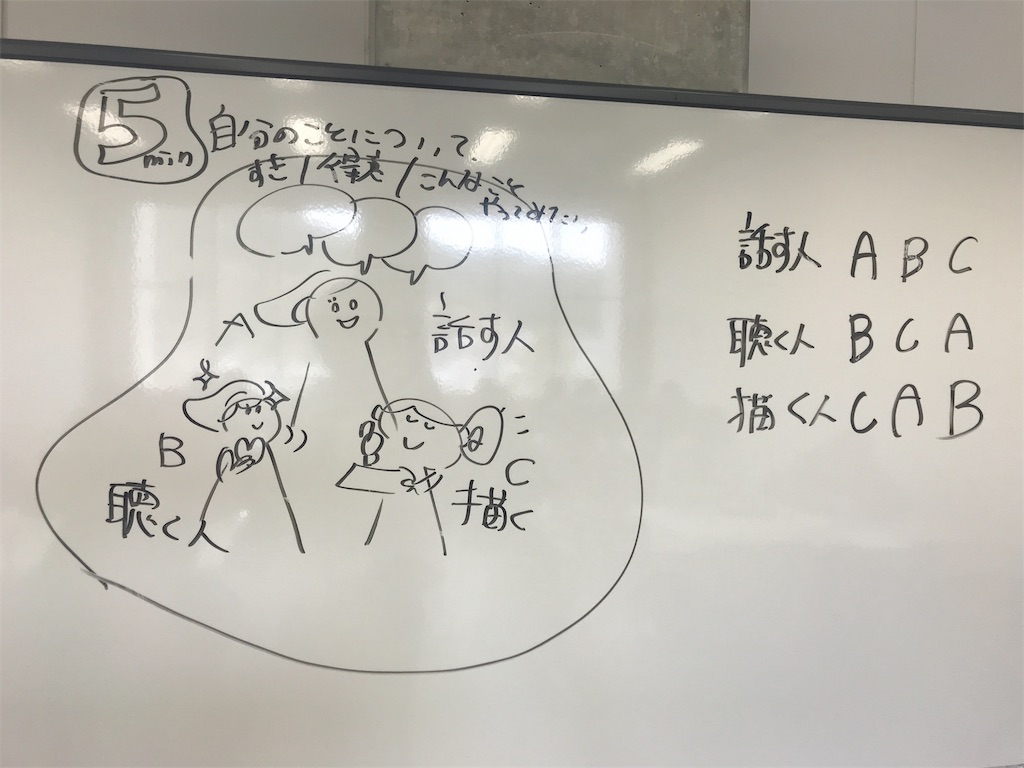 5min
自分のことについて
すき/得意/こんなこと
やってみたい
A
話す人
B
聴く人
C
描く
話す人 A B C
聴く人 B C A
描く人 C A B